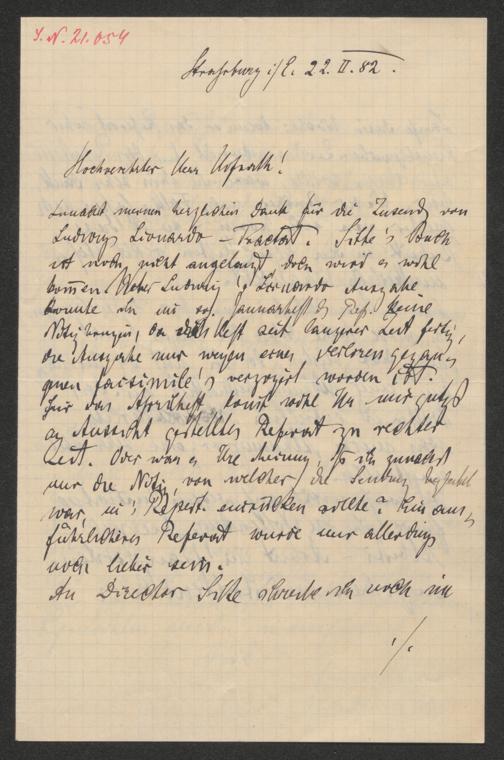 I. N. 21.054
Strassburg i/E. 22. II. 82.
Hochverehrter Herr Hofrath!
Zunächst meinen herzlichsten Dank für die Zusendg von
Ludwigs Lionardo – Tractat. Sitte's Buch
ist noch nicht angelangt doch wird es wohl
kommen. Ueber Ludwig's Lionardo Ausgabe
konnte ich ins sog. Januarheft des Rep. keine
Notiz bringen, da das Heft seit langer Zeit fertig,
die Ausgabe nur wegen eines verloren gegan-
genen facsimile's verzögert worden ist.
Für das Aprilheft kommt wohl Ihr mir gütigst
in Aussicht gestelltes Referat zu rechter
Zeit. Oder war es Ihre Meinung, dß ich zunächst
nur die Notiz, von welcher die Sendung begleitet
war in's Repert. einrücken sollte? Ein aus-
führlicheres Referat wurde mir allerdings
noch lieber sein.
An Director Sitte schreibe ich noch im
./.